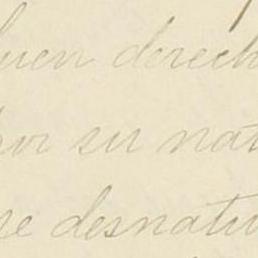 buen derech
por su nat
re desnatu